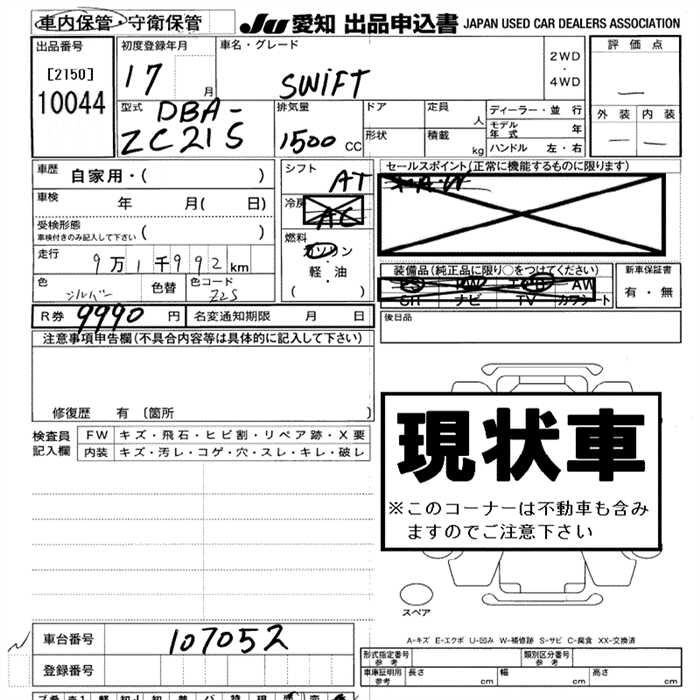 車内保管・守衛保管
JU 愛知 出品申込書 JAPAN USED CAR DEALERS ASSOCIATION
出品番号
[2150]
10044
初度登録年月
17 月
車名・グレード
SWIFT
2WD
・
4WD
評価点
—
外装 内装
— —
型式 DBA-
ZC21S
排気量
1500 CC
ドア
形状
定員 人
積載 kg
ディーラー・並行
モデル年式 年
ハンドル 左・右
車歴 自家用・( )
車検 年 月( 日)
受検形態
車検付きのみ記入して下さい ( )
走行 9万1千992km
色 シルバー
色替
色コード
Z2S
シフト AT
冷房 AC
燃料
ガソリン
・
軽・油
( )
セールスポイント(正常に機能するものに限ります)
装備品(純正品に限り○をつけてください)
PS PW エアB AW
SR ナビ TV カワシート
新車保証書
有・無
R券 9990 円
名変通知期限 月 日
後日品
注意事項申告欄(不具合内容等は具体的に記入して下さい)
修復歴 有 〔箇所 〕
検査員
記入欄
FW キズ・飛石・ヒビ割・リペア跡・X要
内装 キズ・汚レ・コゲ・穴・スレ・キレ・破レ
現状車
※このコーナーは不動車も含み
ますのでご注意下さい
スペア
A-キズ E-エクボ U-凹み W-補修跡 S-サビ C-腐食 XX-交換済
車台番号 107052
登録番号
形式指定番号
参考
類別区分番号
参考
車庫証明用
参考
長さ cm
幅 cm
高さ cm